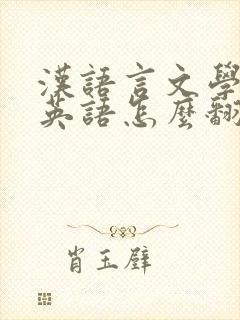 漢語言文學
英語怎麼翻
肖玉璧